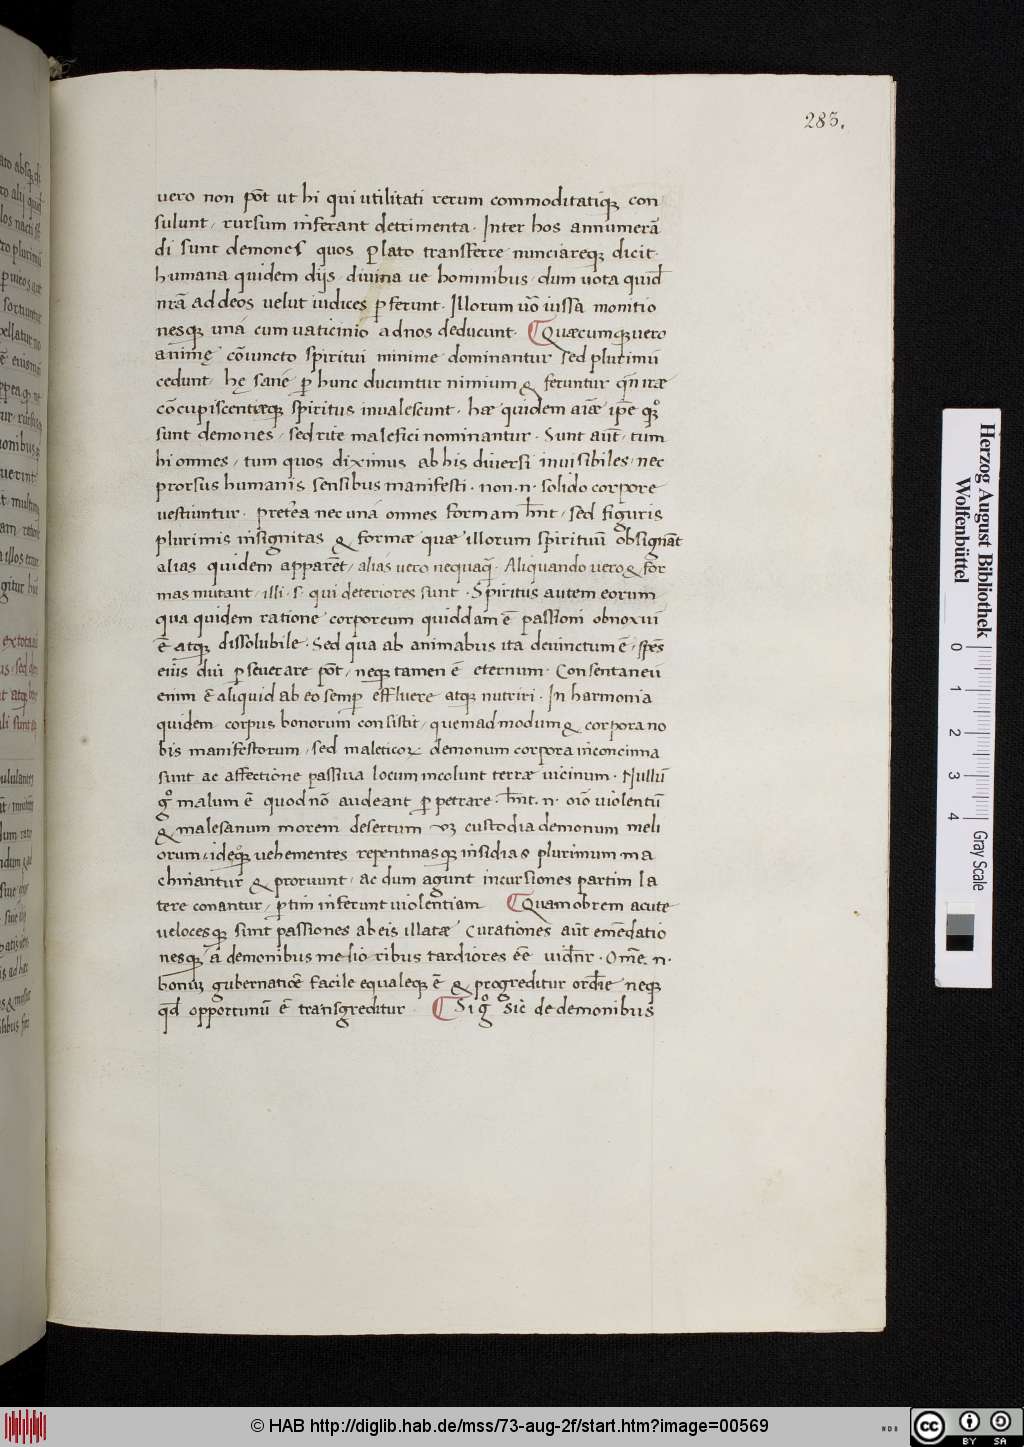 283.
vero non pōt ut hi qui utilitati rerum commoditatiqꝫ con
sulunt, rursum inferant detrimenta. Inter hos annumerā
di sunt demones quos Plato transferre nunciareqꝫ dicit.
humana quidem dijs, divina ve hominibus, dum vota quid
nrā ad deos velut iudices ꝑferunt. Illorum vō iussa monitio
nesqꝫ una cum vaticinio ad nos deducunt. Quæcumqꝫ vero
animę cōiuncto spiritui minime dominantur sed plurimū
cedunt, hę sane ꝑ hunc ducuntur nimium & feruntur qn̄ iræ
cōcupiscentiæqꝫ spiritus invalescunt. hæ quidem aīæ ip̄e
sunt demones, sed rite malefici nominantur. Sunt aūt, tum
hi omnes, tum quos diximus ab his diversi invisibiles, nec
prorsus humanis sensibus manifesti. non .n. solido corpore
vestiuntur. pretēa nec una omnes formam hn̄t, sed figuris
plurimis insignitas & formæ quæ illorum spirituū obsignāt
alias quidem apparēt, alias vero nequaq̄. Aliquando vero & for
mas mutant, illi .s. qui deteriores sunt. Spiritus autem eorum
qua quidem ratione corporeum quiddam ē passioni obnoxiū
ē atqꝫ dissolubile. Sed qua ab animabus ita devinctum ē, spēs
eiūs diu ꝑseverare pōt, neqꝫ tamen ē eternum. Consentaneū
enim ē aliquid ab eo semꝑ effluere atqꝫ nutriri. In harmonia
quidem corpus bonorum consistit, quemadmodum & corpora no
bis manifestorum, sed maleficoꝝ demonum corpora inconcinna
sunt ac affectione passiva locum incolunt terræ vicinum. Nullū
gͦ malum ē quod nō audeant ꝑpetrare. hn̄t .n. oīo violentū
& malesanum morem desertum custodia demonum meli
orum, ideoqꝫ vehementes repentinasqꝫ insidias plurimum ma
chinantur & proruunt, ac dum agunt incursiones partim la
tere conantur, ꝑtim inferunt violentiam Quamobrem acute
velocesqꝫ sunt passiones ab eis illatæ Curationes aūt emēdatio
nesqꝫ a demonibus melioribus tardiores eē vident̄r. Omē .n.
bonum gubernatione facile equaleqꝫ ē & progreditur ordīe neqꝫ
qd̄ opportunū ē transgreditur. Si gͦ sic de demonibus
Herzog August Bibliothek
Wolfenbüttel
0 1 2 3 4 Gray Scale
© HAB http://diglib.hab.de/mss/73-aug-2f/start.htm?image=00569
WDB
cc BY SA